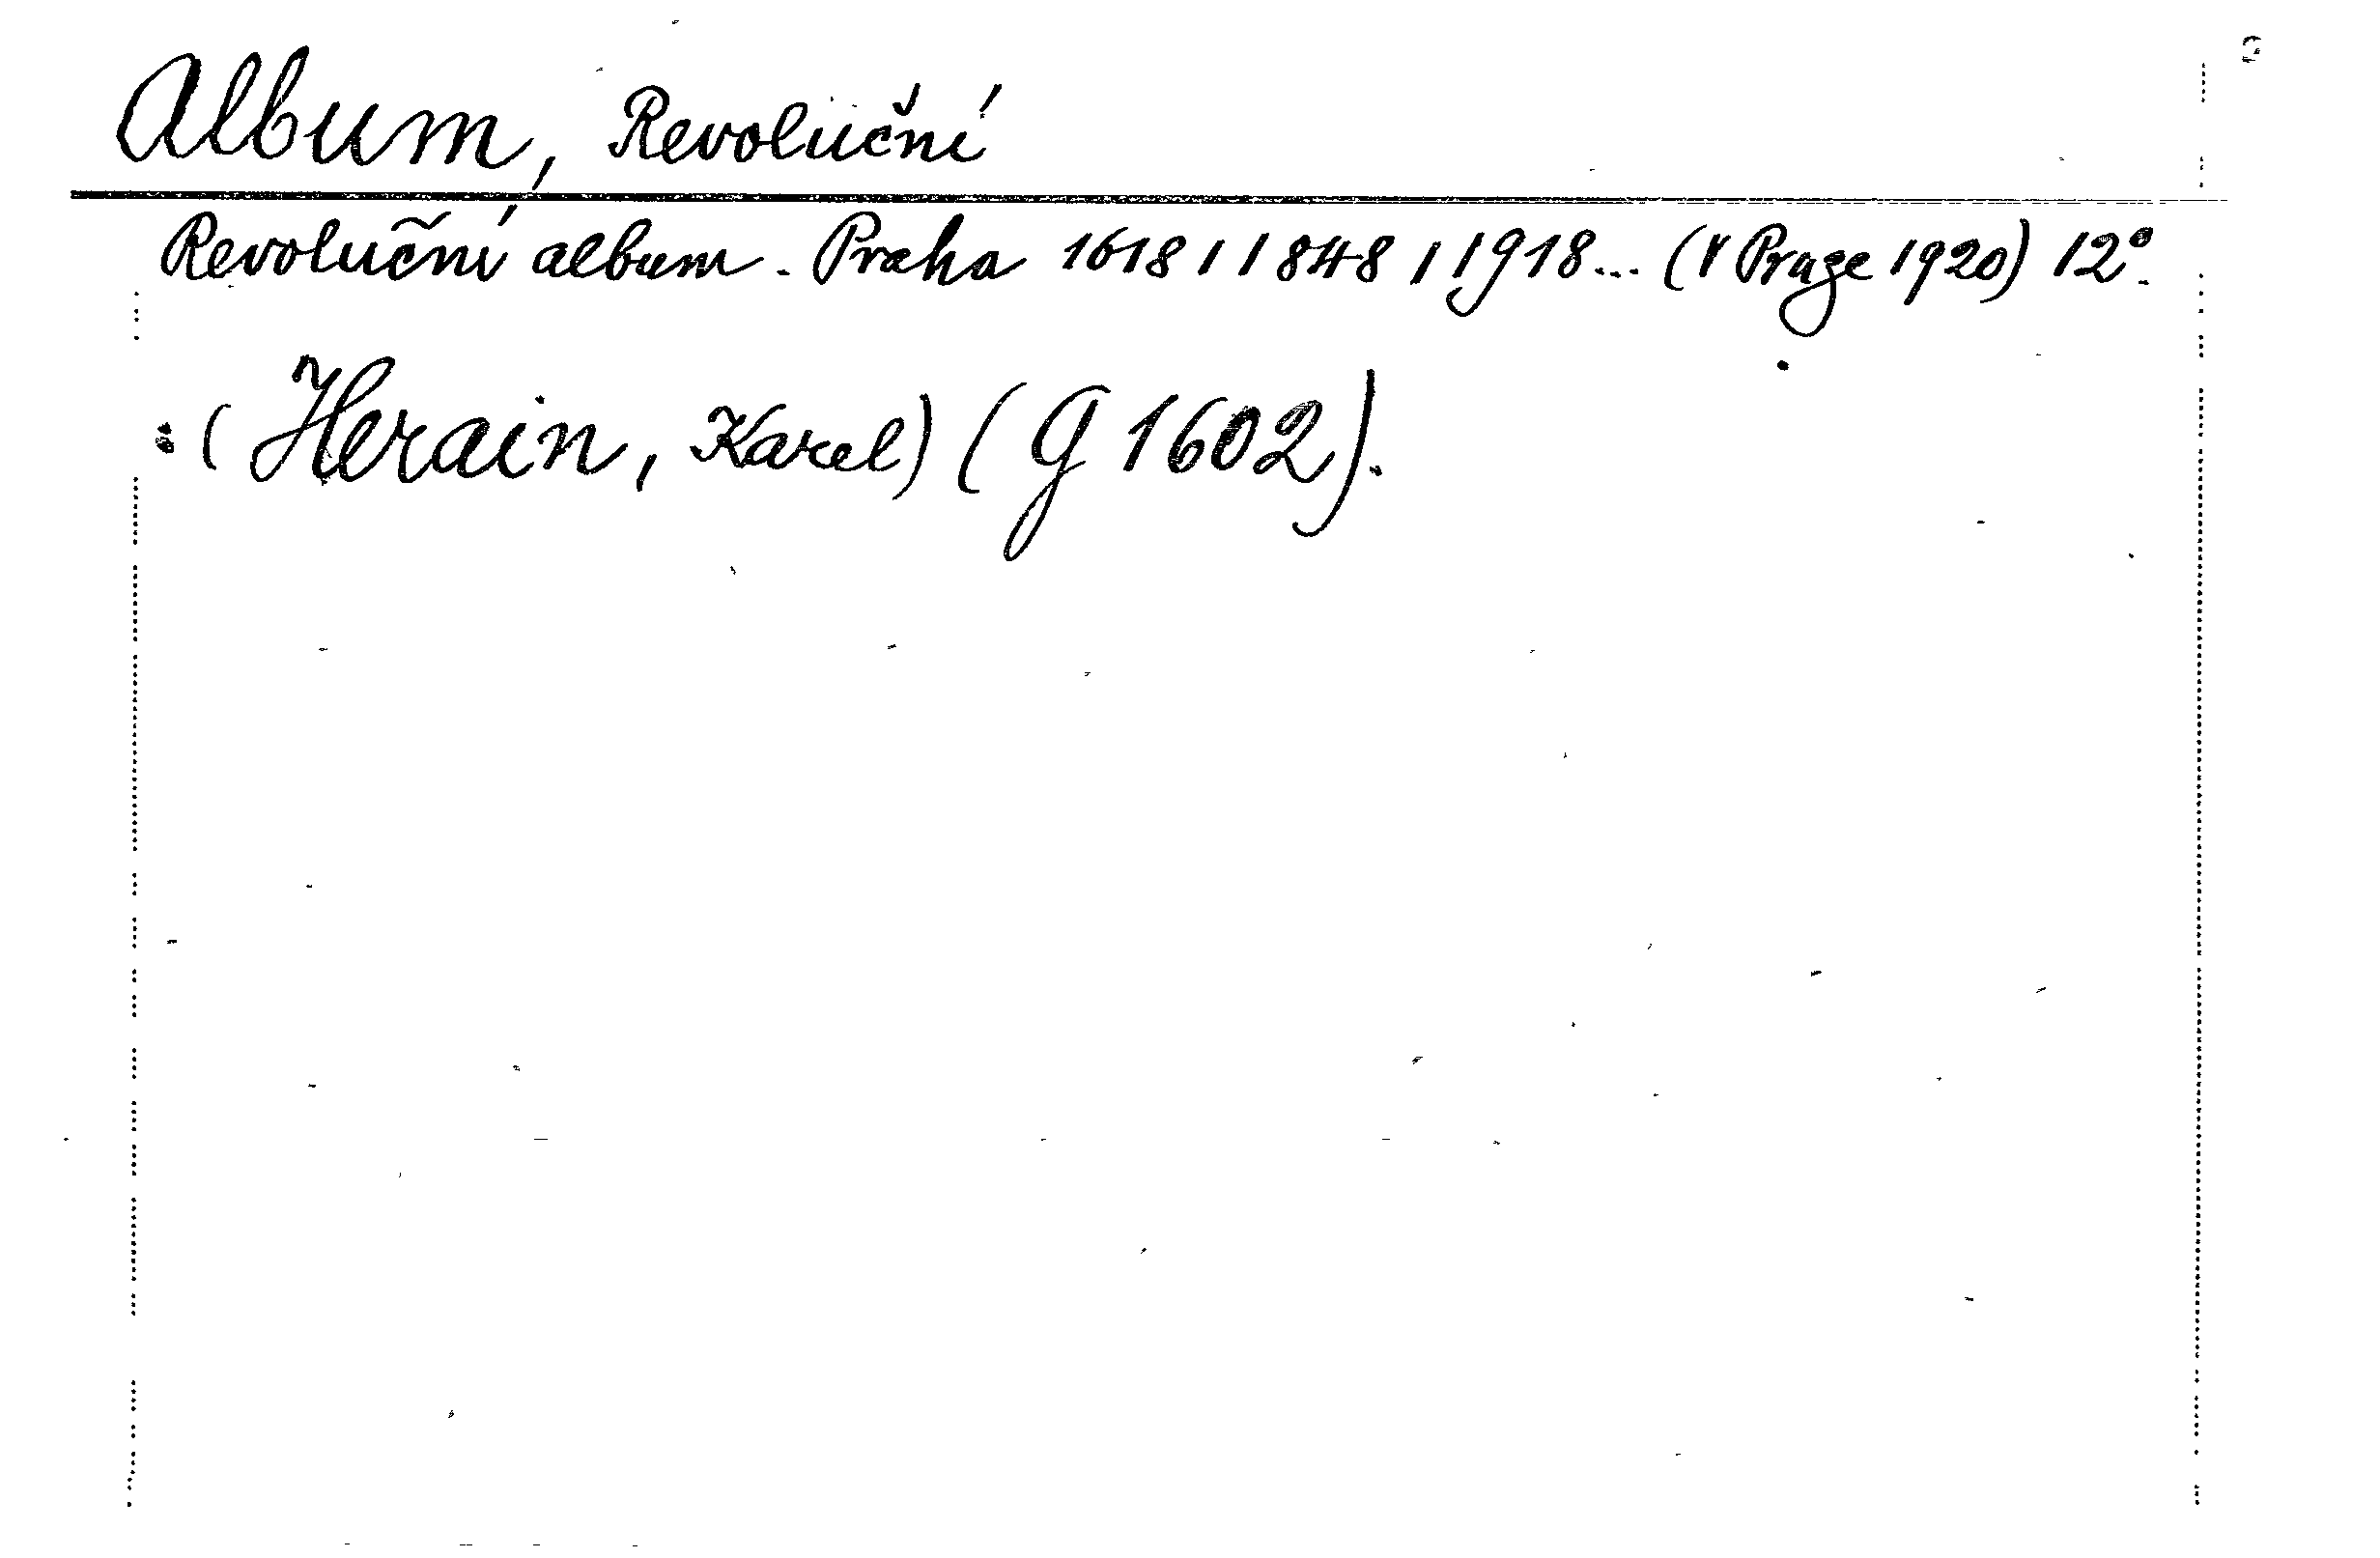 Album, Revoluční
Revoluční album. Praha 1618 / 1848 / 1918... (V Praze 1920) 12°.
: (Herain, Karel) (G 1602).